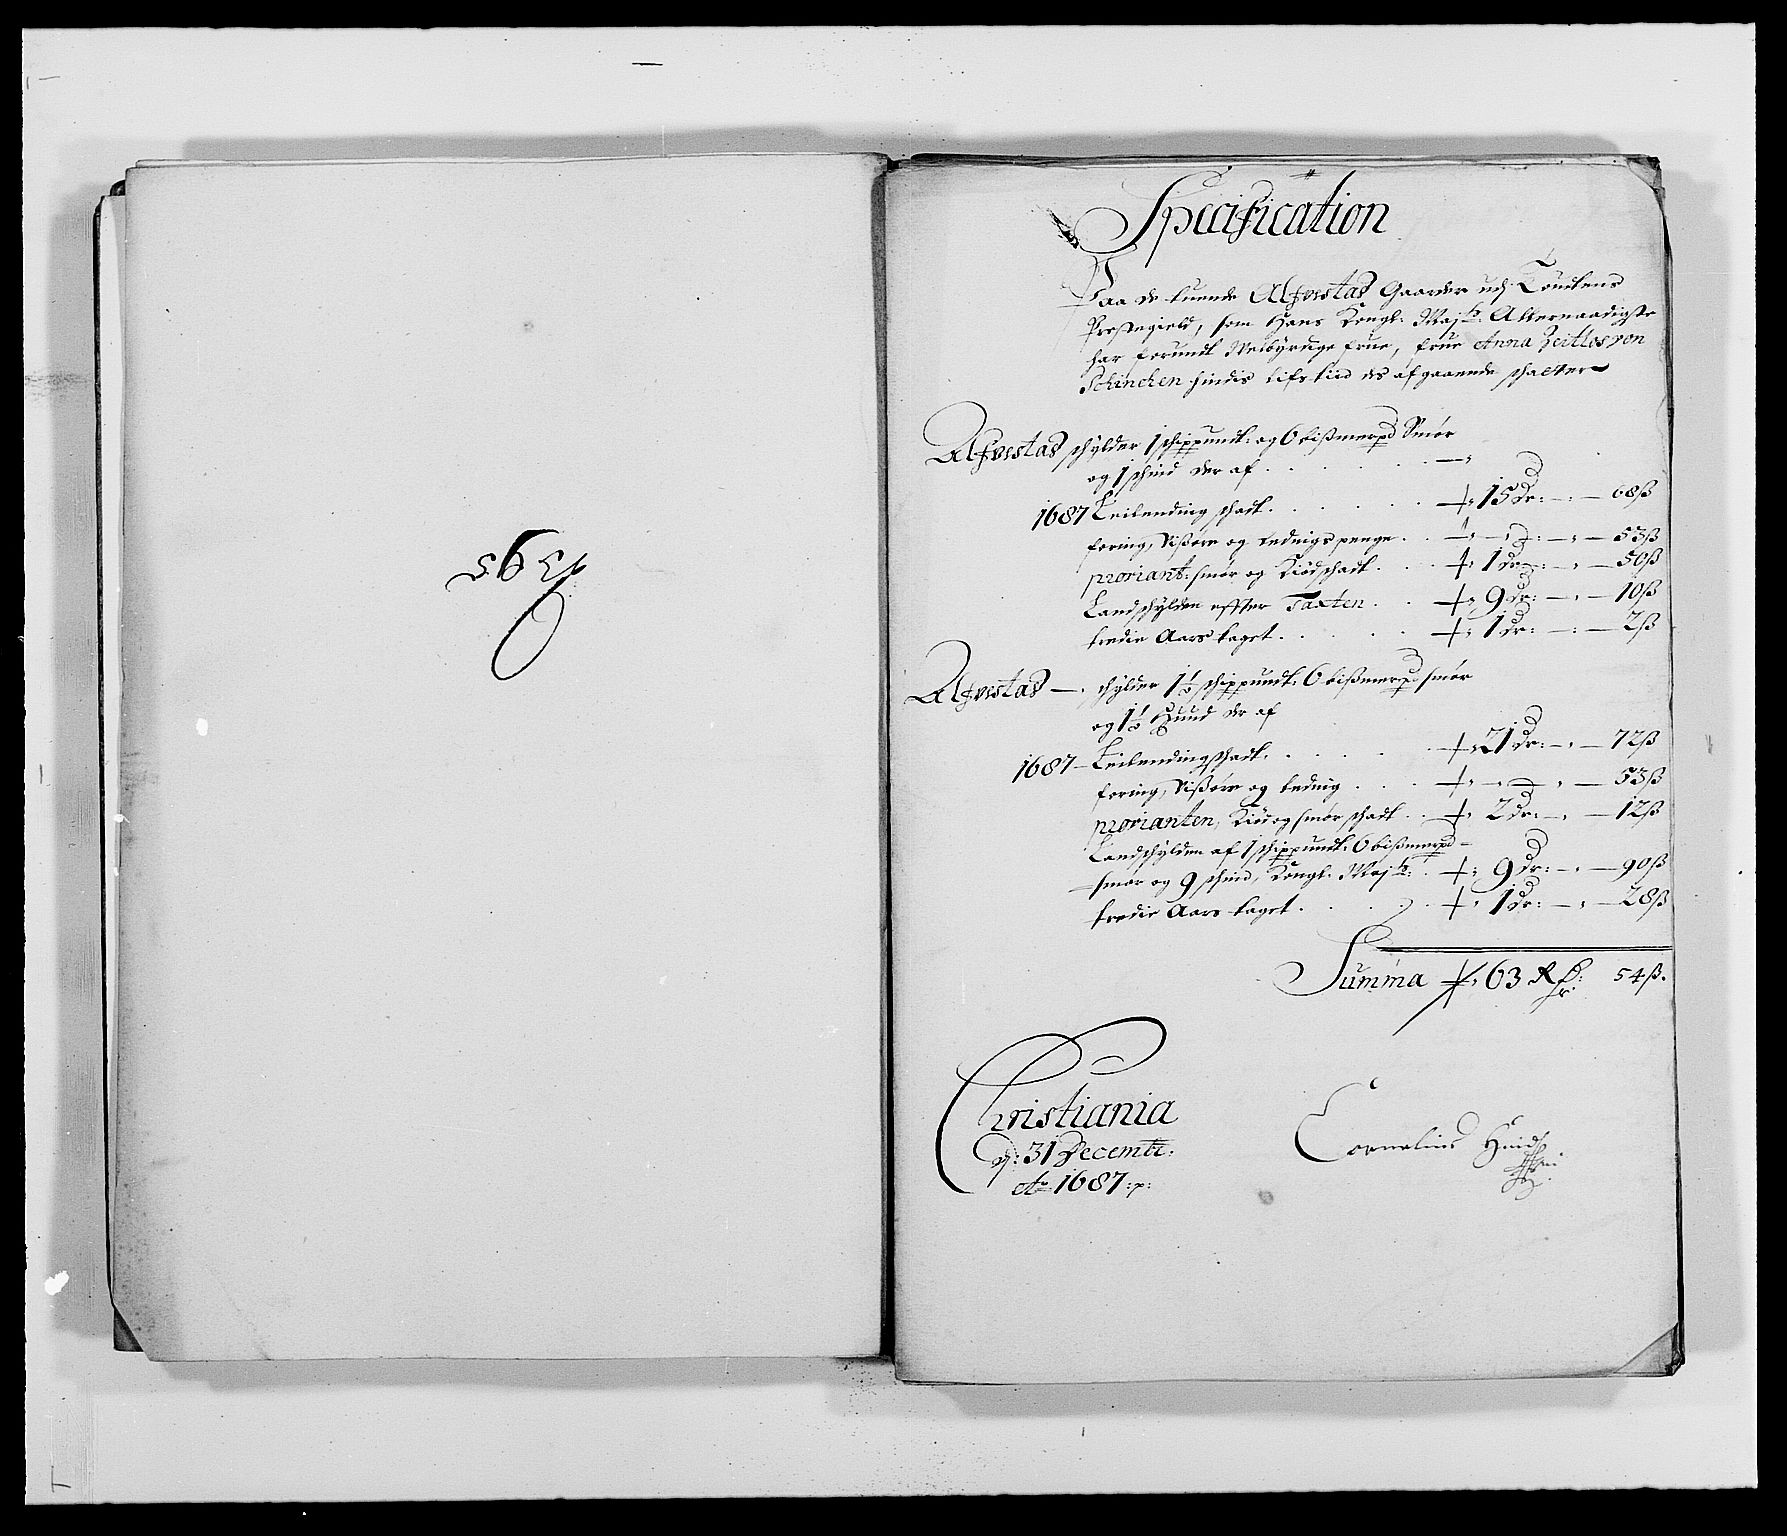 Specification
Paa de tuende Alfvestad Gaarder udj Toudtens
Prestegield, som Hans Kongl: Maj:tz Allernaadigste
har forundt Welbyrdige frue, frue Anna Zeitlos von
Schinchen hindis lifs tiid des afgaaende schatter
Alfvestad schylder 1 schippundt: og 6 bißmerpd Smør
og 1 schind der af
1687 Leilending schadt 15 Dr: 68 ß
foring, Wißøre og ledings penge 53 ß
proviant: smør og Kiødschadt 1 Dr: 50 ß
Landschylden effter Taxten 9 Dr: 10 ß
tredie Aars taget 1 Dr: 2 ß
Alfvestad schylder 1½ schippundt: 6 bißmerpd smør
og 1½ Huud der af
1687 Leilendingschadt 21 Dr: 72 ß
foring, Wißøre og leding 53 ß
provianten, Kiød og smør schadt 2 Dr: 12 ß
Landschylden af 1 schippundt: 6 bißmerpd
smør og 9 schind, Kongl: Maj:tz: 9 Dr: 90 ß
tredie Aars taget 1 Dr: 28 ß
Summa 63 Rdr: 54 ß.
Christiania
dj: 31 Decembr:
Ao 1687 :p:
Cornelius